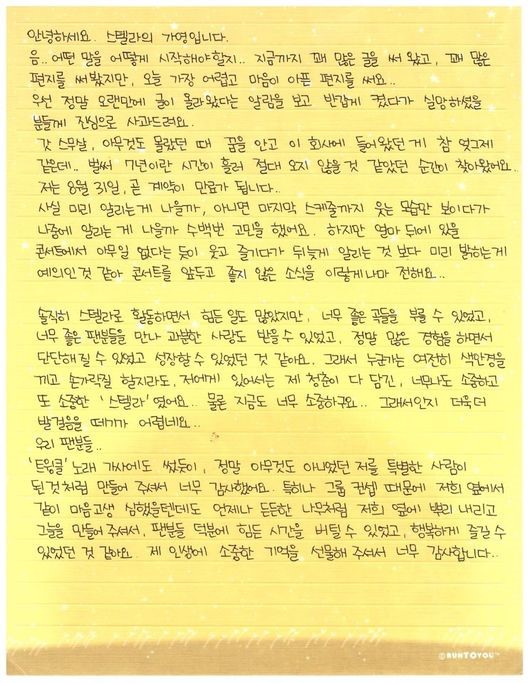 안녕하세요. 스텔라의 가영입니다.
음.. 어떤 말을 어떻게 시작해야할지.. 지금까지 꽤 많은 글을 써 왔고, 꽤 많은
편지를 써 봤지만, 오늘 가장 어렵고 마음이 아픈 편지를 써요..
우선 정말 오랜만에 글이 올라왔다는 알림을 보고 반갑게 켰다가 실망하셨을
분들께 진심으로 사과드려요..
갓 스무살, 아무것도 몰랐던 때 꿈을 안고 이 회사에 들어왔던 게 참 엊그제
같은데.. 벌써 7년이란 시간이 흘러 절대 오지 않을 것 같았던 순간이 찾아왔어요..
저는 8월 31일, 곧 계약이 만료가 됩니다..
사실 미리 알리는게 나을까, 아니면 마지막 스케줄까지 웃는 모습만 보이다가
나중에 알리는 게 나을까 수백번 고민을 했어요.. 하지만 얼마 뒤에 있을
콘서트에서 아무일 없다는 듯이 웃고 즐기다가 뒤늦게 알리는 것 보다 미리 밝히는게
예의인 것 같아 콘서트를 앞두고 좋지 않은 소식을 이렇게나마 전해요..
솔직히 스텔라로 활동하면서 힘든 일도 많았지만, 너무 좋은 곡들을 부를 수 있었고,
너무 좋은 팬분들을 만나 과분한 사랑도 받을 수 있었고, 정말 많은 경험을 하면서
단단해질 수 있었고 성장할 수 있었던 것 같아요. 그래서 누군가는 여전히 색안경을
끼고 손가락질 할지라도, 저에게 있어서는 제 청춘이 다 담긴, 너무나도 소중하고
또 소중한 '스텔라'였어요.. 물론 지금도 너무 소중하구요.. 그래서인지 더욱더
발걸음을 떼기가 어렵네요..
우리 팬분들..
'트윙클' 노래 가사에도 썼듯이, 정말 아무것도 아니었던 저를 특별한 사람이
된 것처럼 만들어 주셔서 너무 감사했어요.. 특히나 그룹 컨셉 때문에 저희 옆에서
같이 마음고생 심했을텐데도 언제나 든든한 나무처럼 저희 옆에 뿌리 내리고
그늘을 만들어 주셔서, 팬분들 덕분에 힘든 시간을 버틸 수 있었고, 행복하게 즐길 수
있었던 것 같아요. 제 인생에 소중한 기억을 선물해 주셔서 너무 감사합니다..
©RUNTOYOU™